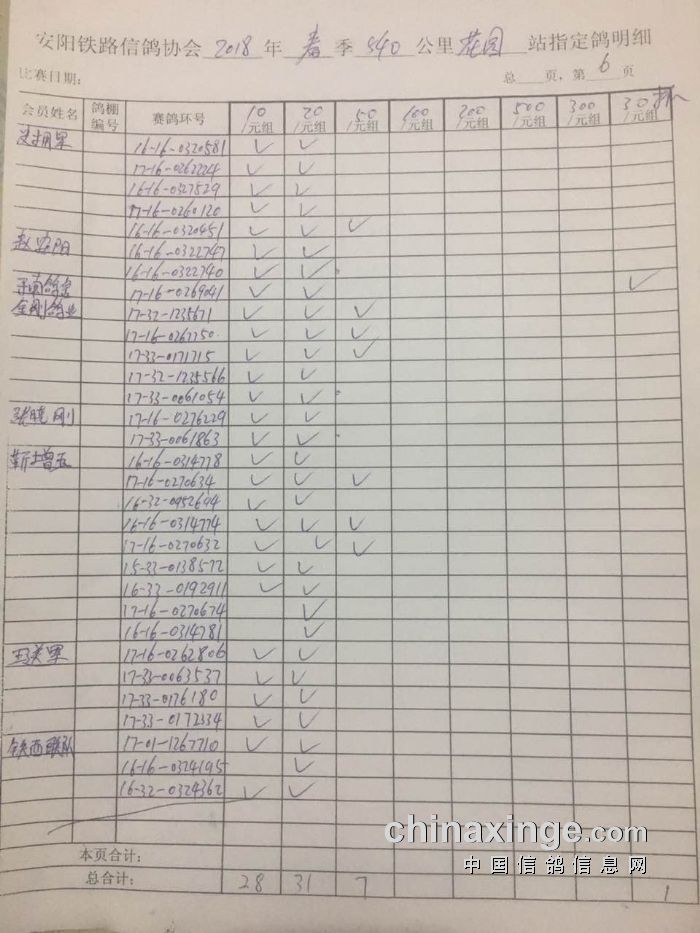 安阳铁路信鸽协会 2018 年 春 季 540 公里 花园 站指定鸽明细
比赛日期: 总 页, 第 6 页
会员姓名 鸽棚编号 赛鸽环号 10/元组 20/元组 50/元组 100/元组 200/元组 500/元组 300/元组 30/元组
16-16-0320581 ✓ ✓
17-16-0262224 ✓ ✓
16-16-0327529 ✓ ✓
17-16-0260120 ✓ ✓
16-16-0320451 ✓ ✓ ✓
16-16-0322747 ✓ ✓
16-16-0322740 ✓ ✓
17-16-0269041 ✓ ✓ ✓
金刚鸽业 17-32-1235671 ✓ ✓ ✓
17-16-0267750 ✓ ✓ ✓
17-33-0171715 ✓ ✓ ✓
17-32-1235566 ✓ ✓
17-33-0061054 ✓ ✓
张晓刚 17-16-0276229 ✓ ✓
17-33-0061863 ✓ ✓
靳增五 16-16-0314778 ✓ ✓
17-16-0270634 ✓ ✓ ✓
16-32-0952694 ✓ ✓
16-16-0314774 ✓ ✓ ✓
17-16-0270632 ✓ ✓ ✓
15-33-0138572 ✓ ✓
16-33-0192911 ✓ ✓
17-16-0270674 ✓
16-16-0314781 ✓
17-16-0262806 ✓ ✓
17-33-0063537 ✓ ✓
17-33-0176180 ✓ ✓
17-33-0172334 ✓ ✓
铁西联队 17-01-1267710 ✓ ✓
16-16-0324195 ✓
16-32-0324362 ✓ ✓
本页合计:
总合计: 28 31 7 1
chinaxinge.com
中国信鸽信息网